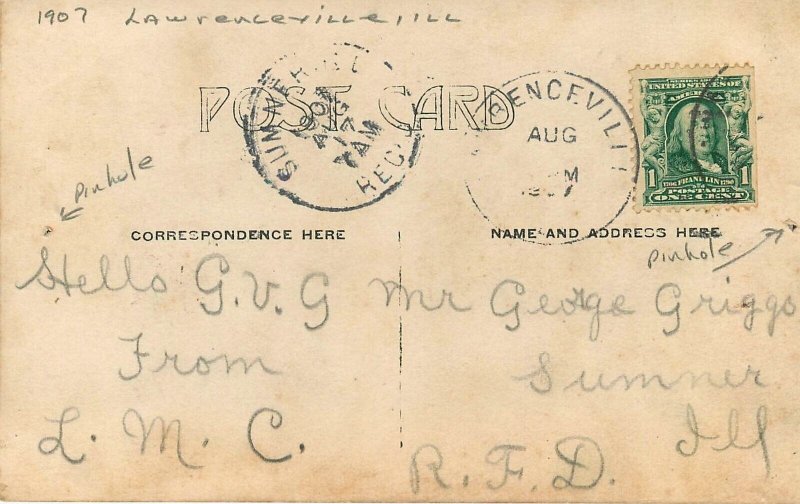 1907 Lawrenceville, Ill
POST CARD
SUMNER
AUG
17
7 AM
REC'D
RENCEVILL
AUG
M
1907
SERIES 1902
UNITED STATES OF
AMERICA
1 1706 FRANKLIN 1790 1
POSTAGE
ONE CENT
pinhole
pinhole
CORRESPONDENCE HERE
Hello G. V. G
From
L. M. C.
NAME AND ADDRESS HERE
Mr George Griggs
Sumner
Ill
R. F. D.